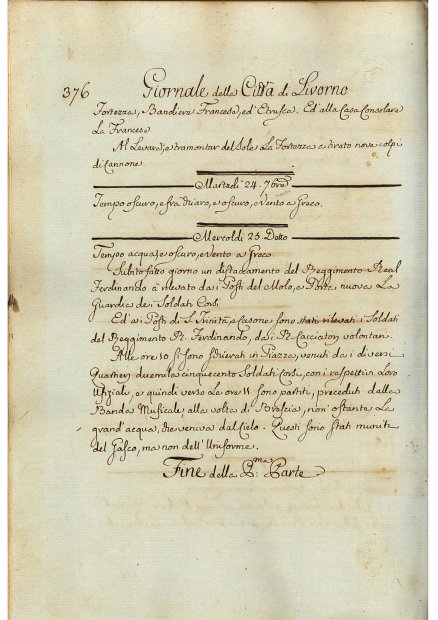 376 Giornale della Città di Livorno
Fortezza, Bandiere Francese, ed' Etrusca. Ed' alla Casa Consolare
La Francese
Al Levare, e tramontar del Sole La Fortezza a tirato nove colpi
di Cannone.
Martedì 24. 7bre
Tempo oscuro, e fra chiaro, e oscuro, e Vento a Greco.
Mercoldì 25. Detto
Tempo acqua, e oscuro, e Vento a Greco.
Subito fatto giorno un distaccamento del Reggimento Real
Ferdinando à rilevato dai Posti del Molo, e Porta nuova La
Guardia dei Soldati Corsi
Ed' ai Posti di S. Trinità, e Casone sono stati rilevati i Soldati
del Reggimento R. Ferdinando, dai R. Cacciatori volontari.
Alle ore 10 si sono schierati in Piazza, venuti dai diversi
Quartieri duemila cinquecento Soldati Corsi, con i respettivi Loro
Ufiziali, e quindi verso Le ore 11 sono partiti, preceduti dalla
Banda Musicale alla volta di Brescia, non' ostante La
grand' acqua, che veniva dal Cielo. Questi sono stati muniti
del Sasco, ma non dell' Uniforme.
Fine della P.ma Parte